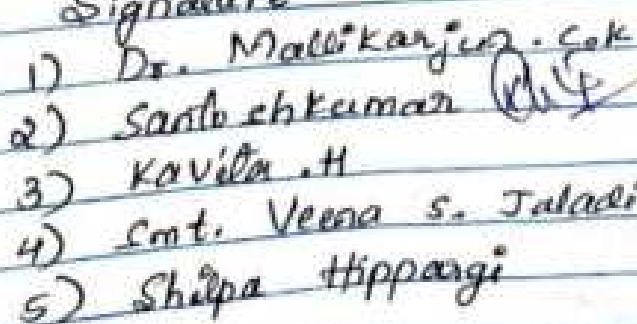 Signature
1) Dr. Mallikarjun. C.K
2) Santoshkumar
3) Kavita .H
4) Smt. Veena S. Jaladi
5) Shilpa Hippargi